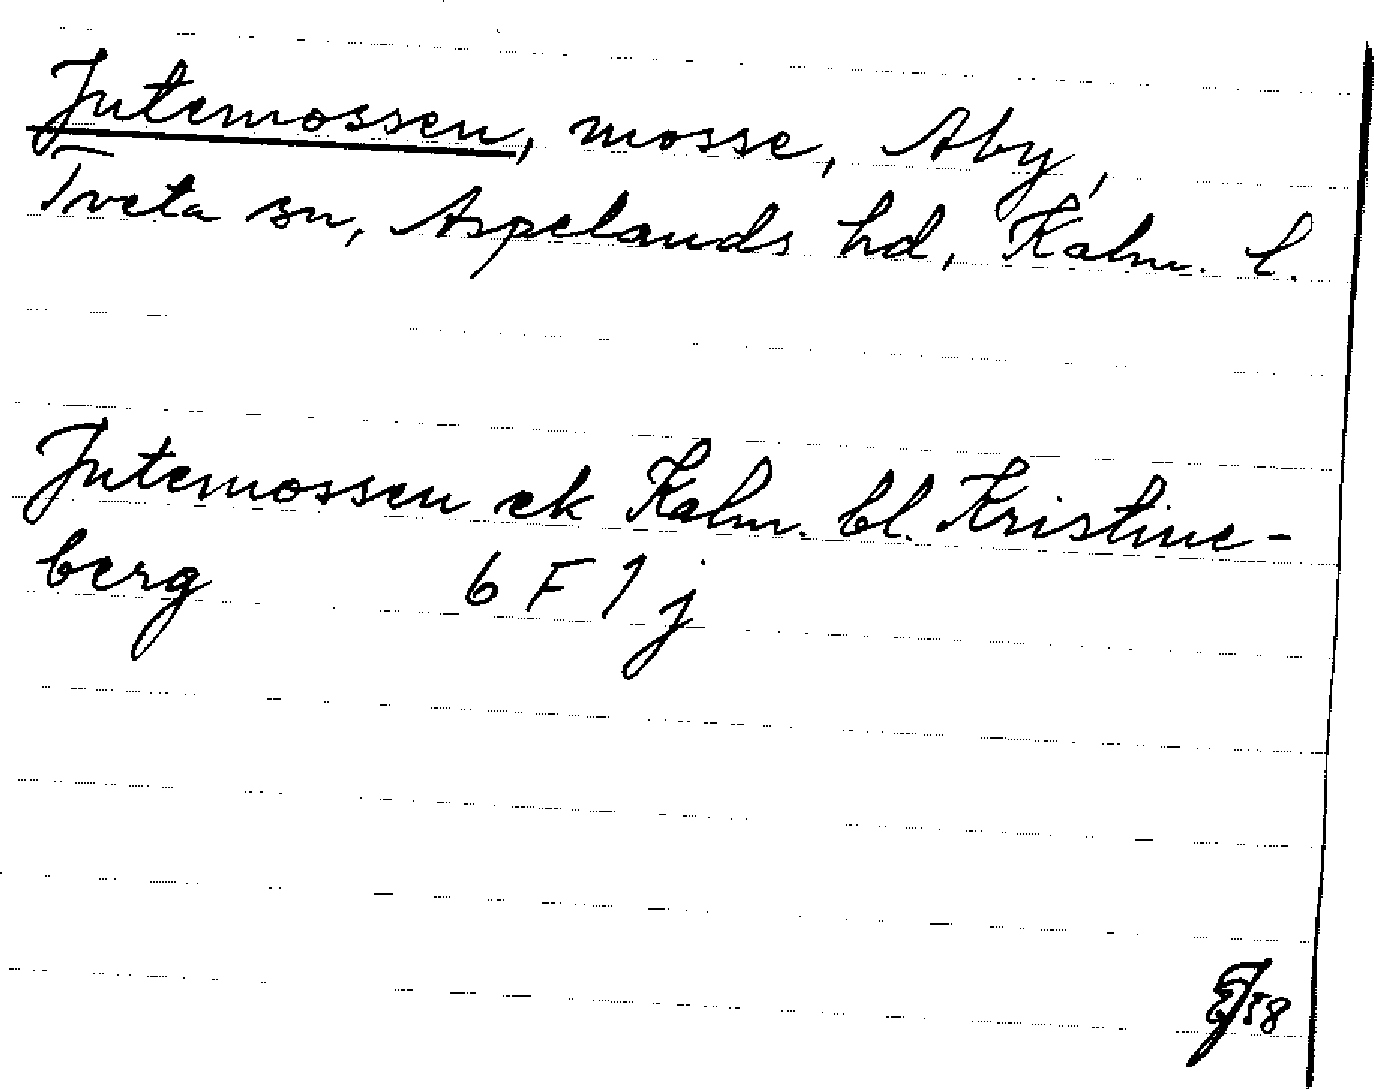 Jutemossen, mosse, Aby,
Tveta sn, Aspelands hd, Kalm. l.
Jutemossen ek Kalm. bl. Kristine-
berg 6 F 1 j